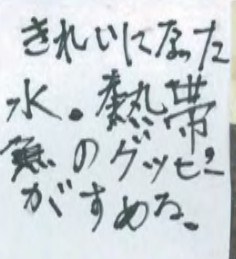 きれいになった
水。熱帯
魚のグッピー
がすめる。